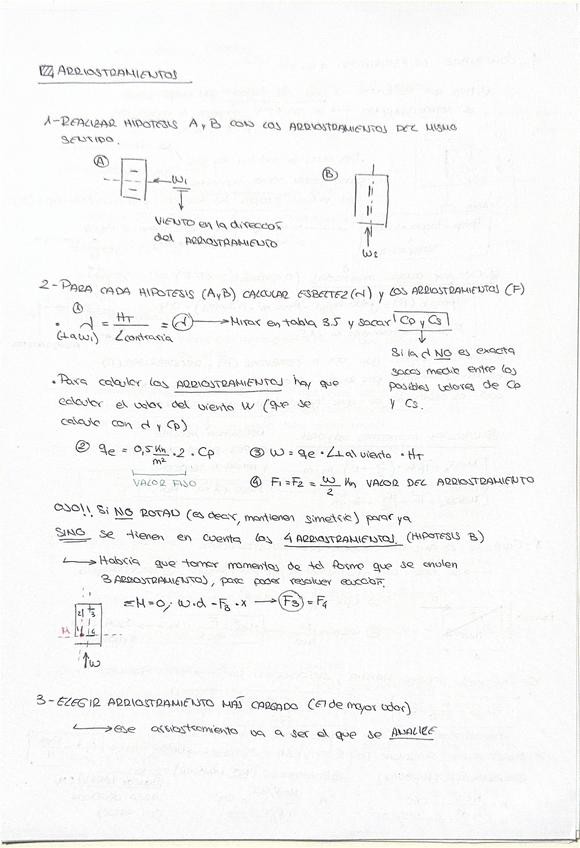 ARRIOSTRAMIENTOS
1-REALIZAR HIPOTESIS A y B CON LOS ARRIOSTRAMIENTOS DEL MISMO
SENTIDO.
A
W1
B
VIENTO en la direccion
del ARRIOSTRAMIENTO
W2
2-PARA CADA HIPOTESIS (A,B) CALCULAR ESBELTEZ (λ) Y LOS ARRIOSTRAMIENTOS (F)
①
• λ = HT / L contraria = λ → Mirar en tabla 3.5 y sacar Cp y Cs
(⊥a W1)
Si la λ NO es exacta
sacas media entre los
posibles valores de Cp
y Cs.
• Para calcular los ARRIOSTRAMIENTOS hay que
calcular el valor del viento W (que se
calcula con λ y Cp)
② qe = 0,5 Kn/m² · 2 · Cp
③ W = qe · L⊥al viento · HT
VALOR FIJO
④ F1 = F2 = W/2 Kn VALOR DEL ARRIOSTRAMIENTO
OJO!! Si NO ROTAN (es decir, mantienen simetria) parar ya
SINO se tienen en cuenta los 4 ARRIOSTRAMIENTOS (HIPOTESIS B)
→ Habria que tomar momentos de tal forma que se anulen
3 ARRIOSTRAMIENTOS, para poder resolver ecuacion.
ΣM=0; W·d - F3 · x → F3 = F4
2 3
M 1 4
W
3-ELEGIR ARRIOSTRAMIENTO MAS CARGADO (El de mayor valor)
→ ese arriostramiento va a ser el que se ANALICE